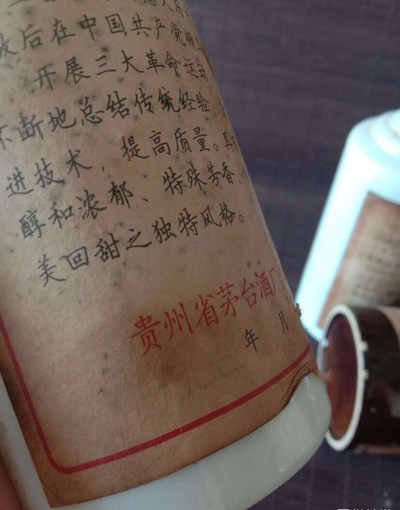 放后在中国共产党领
开展三大革命运动
不断地总结传统经验
进技术，提高质量。具
醇和浓郁、特殊芳香、
美回甜之独特风格。
贵州省茅台酒厂
年 月